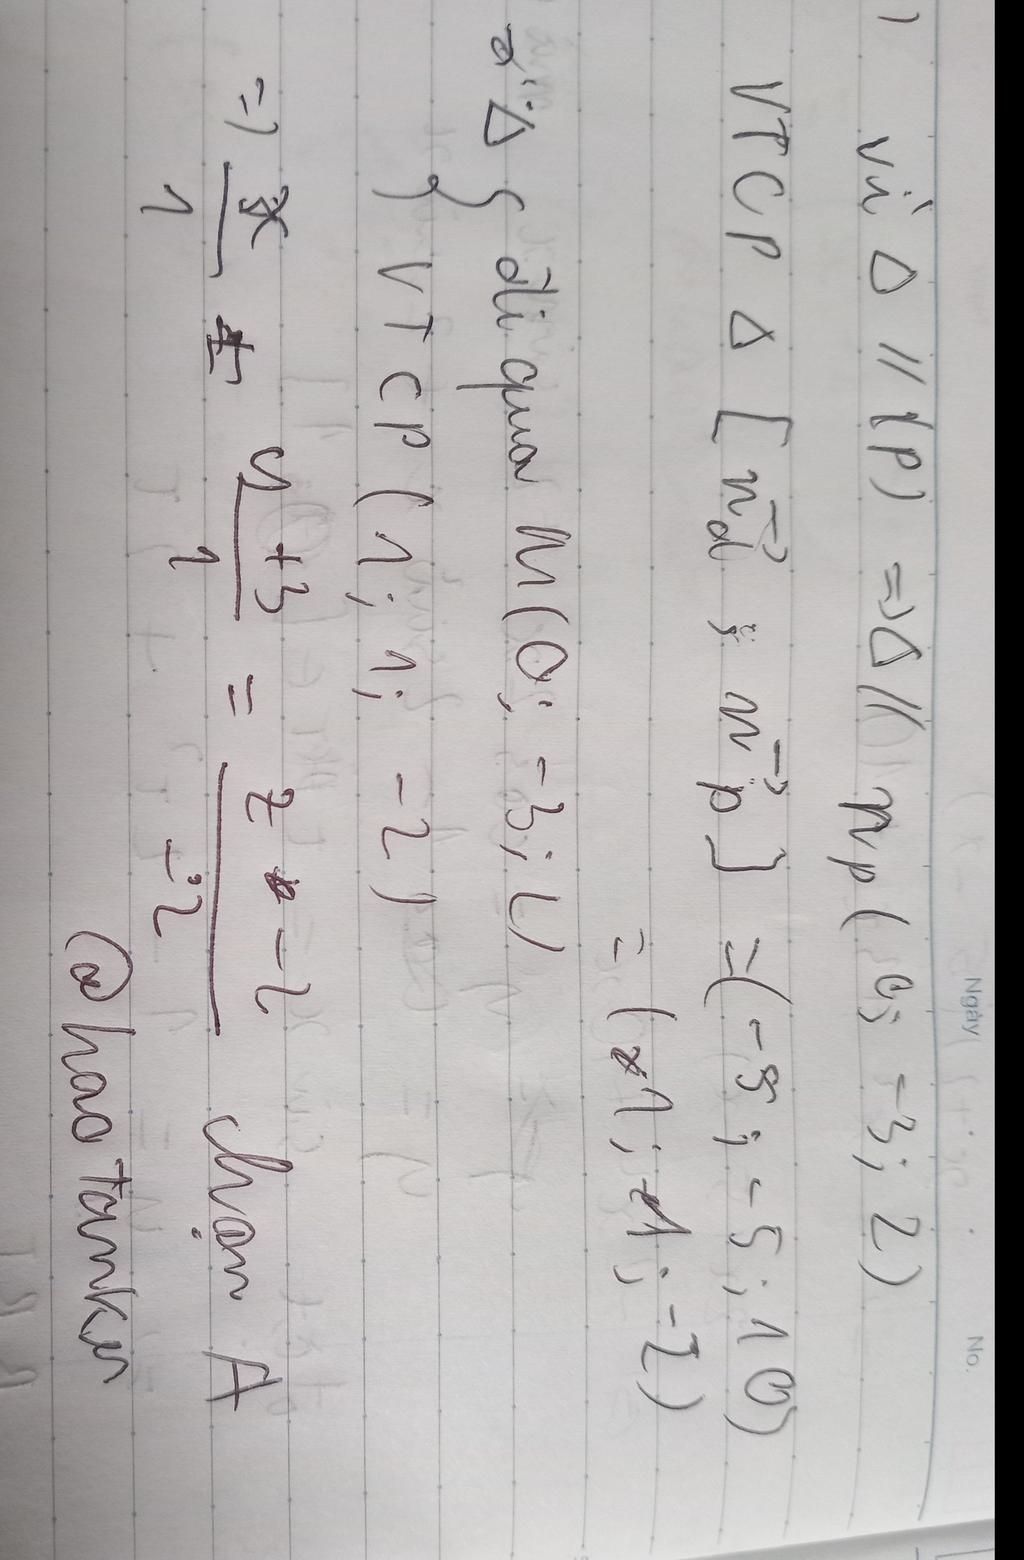 Ngày No.
) vì Δ // (P) => Δ // np (0; -3; 2)
VTCP Δ [n⃗d ; n⃗p] = (-5; -5; 10)
= (1; 1; -2)
Δ { đi qua M(0; -3; 2)
{ VTCP (1; 1; -2)
=> x/1 = y+3/1 = z-2/-2 chọn A
@haotanker